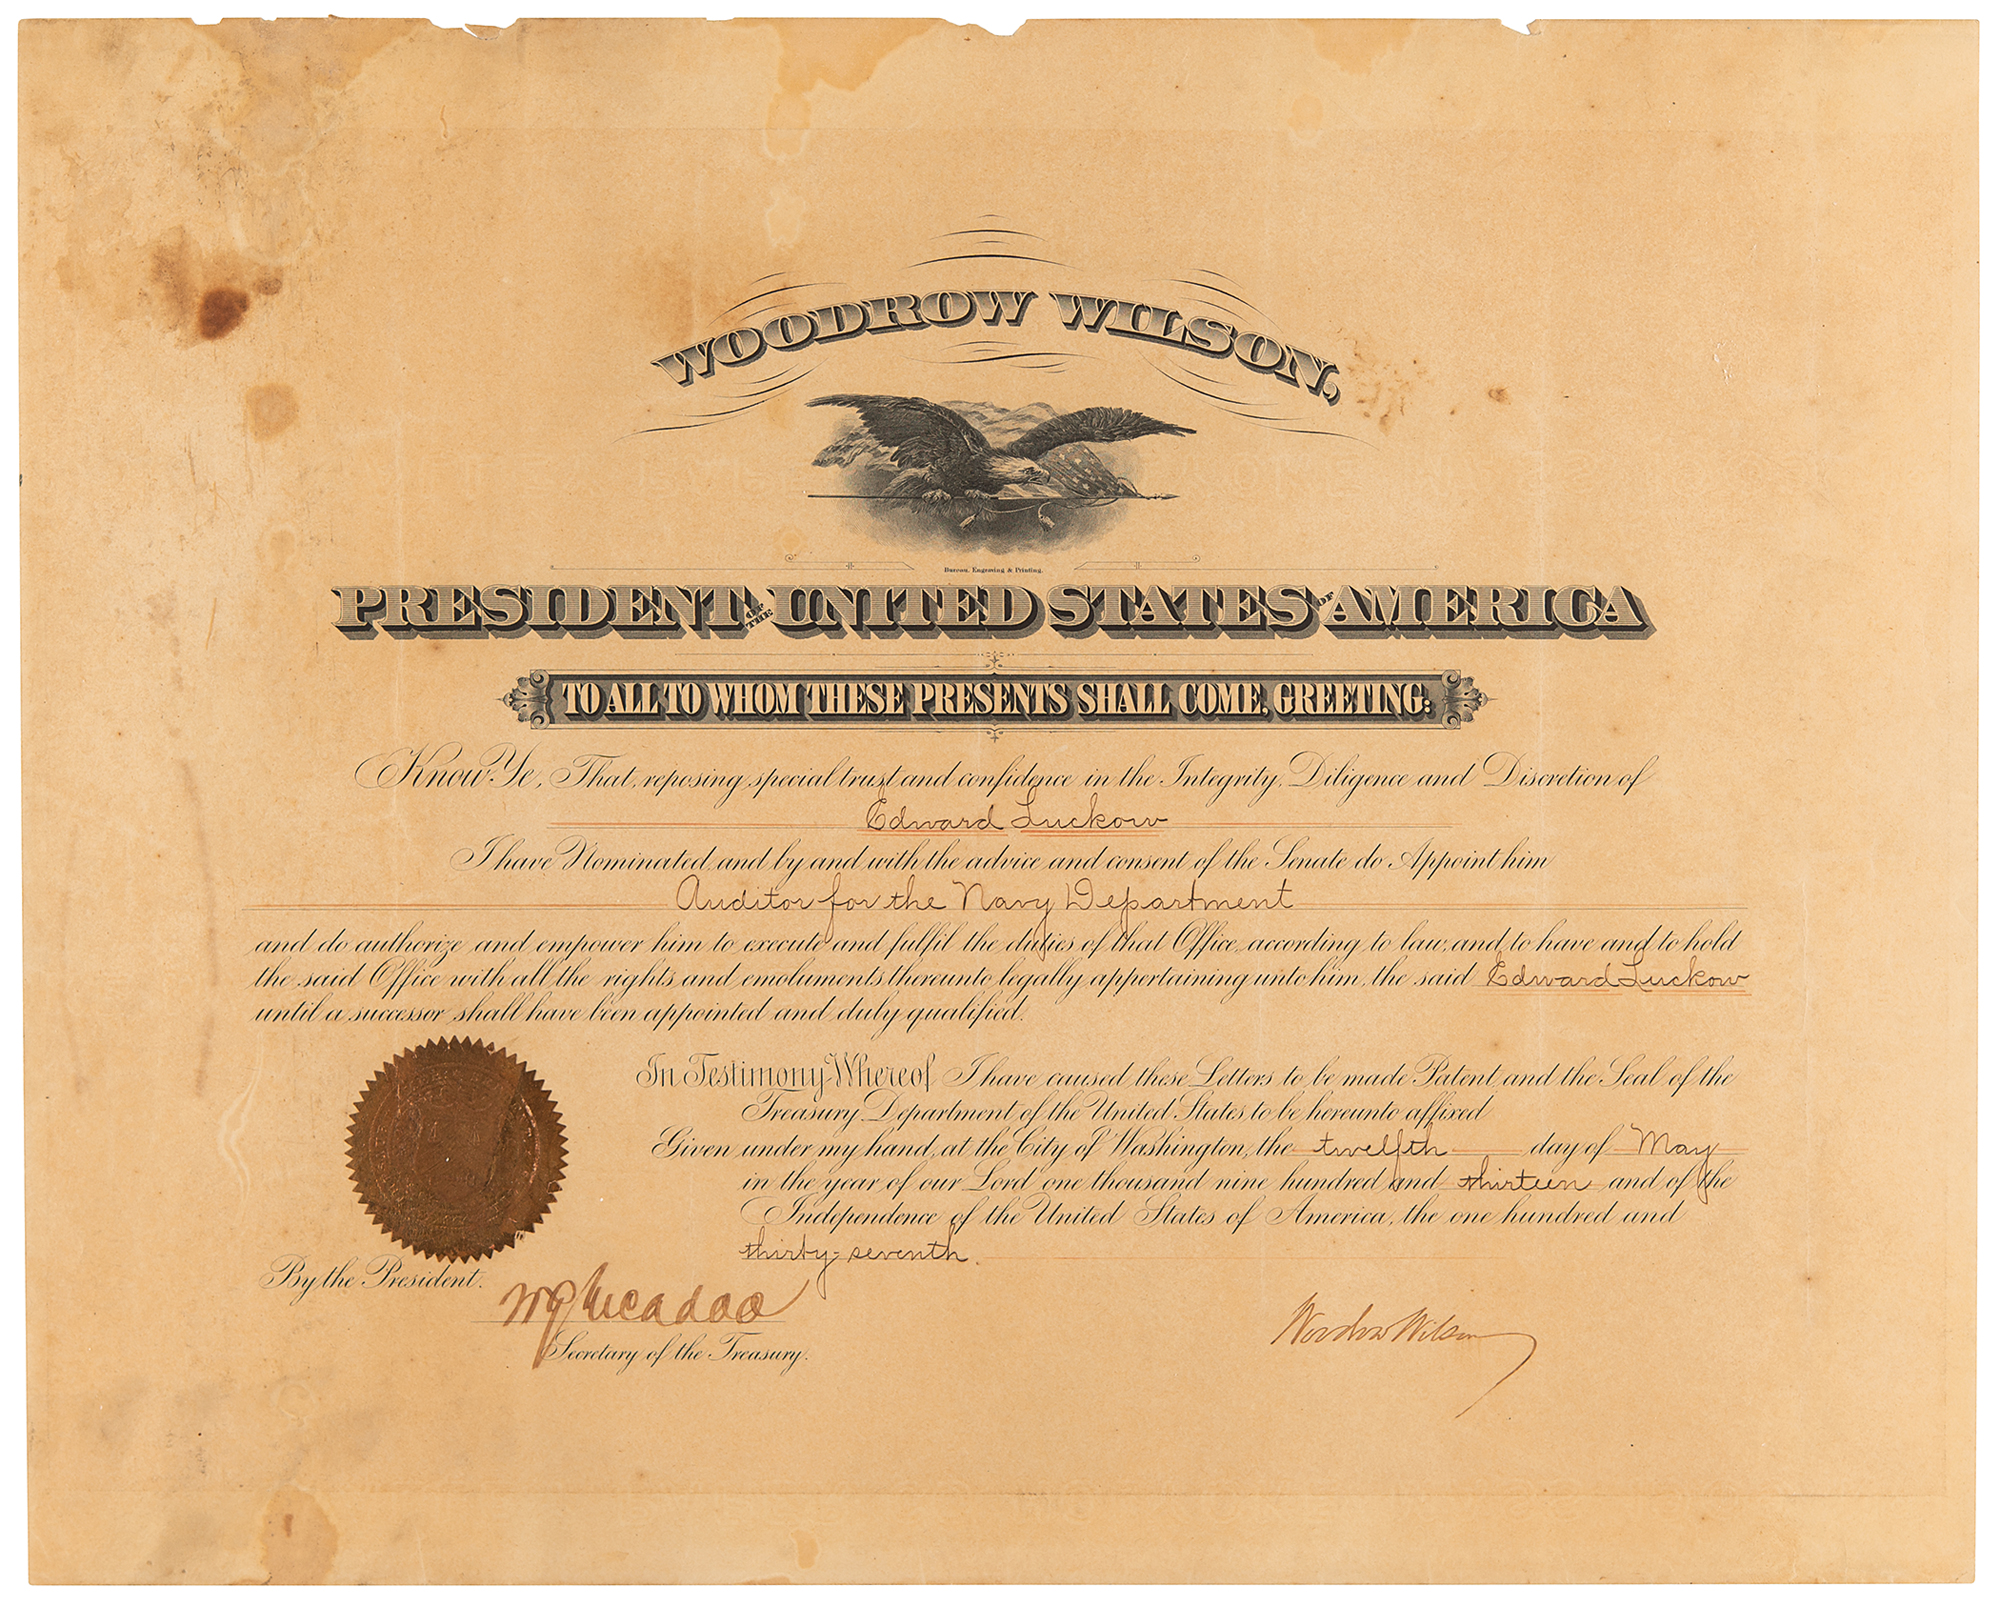 WOODROW WILSON,
Bureau, Engraving & Printing.
PRESIDENT OF THE UNITED STATES OF AMERICA
TO ALL TO WHOM THESE PRESENTS SHALL COME, GREETING:
Know Ye, That, reposing special trust and confidence in the Integrity, Diligence and Discretion of
Edward Luckow
I have Nominated, and by and with the advice and consent of the Senate do Appoint him
Auditor for the Navy Department
and do authorize and empower him to execute and fulfil the duties of that Office, according to law, and to have and to hold
the said Office with all the rights and emoluments thereunto legally appertaining unto him, the said Edward Luckow
until a successor shall have been appointed and duly qualified.
In Testimony Whereof I have caused these Letters to be made Patent, and the Seal of the
Treasury Department of the United States to be hereunto affixed
Given under my hand, at the City of Washington, the twelfth day of May
in the year of our Lord one thousand nine hundred and thirteen and of the
Independence of the United States of America, the one hundred and
thirty-seventh.
By the President.
W G McAdoo
Secretary of the Treasury.
Woodrow Wilson